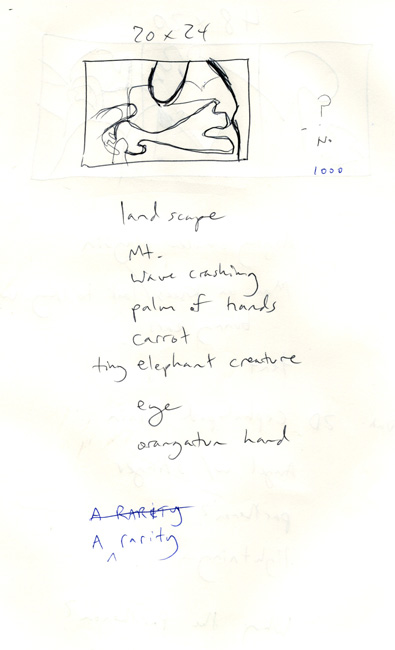 20 x 24
?
No
1000
landscape
Mt.
wave crashing
palm of hands
carrot
tiny elephant creature
eye
orangatun hand
A RARITY
A rarity
^